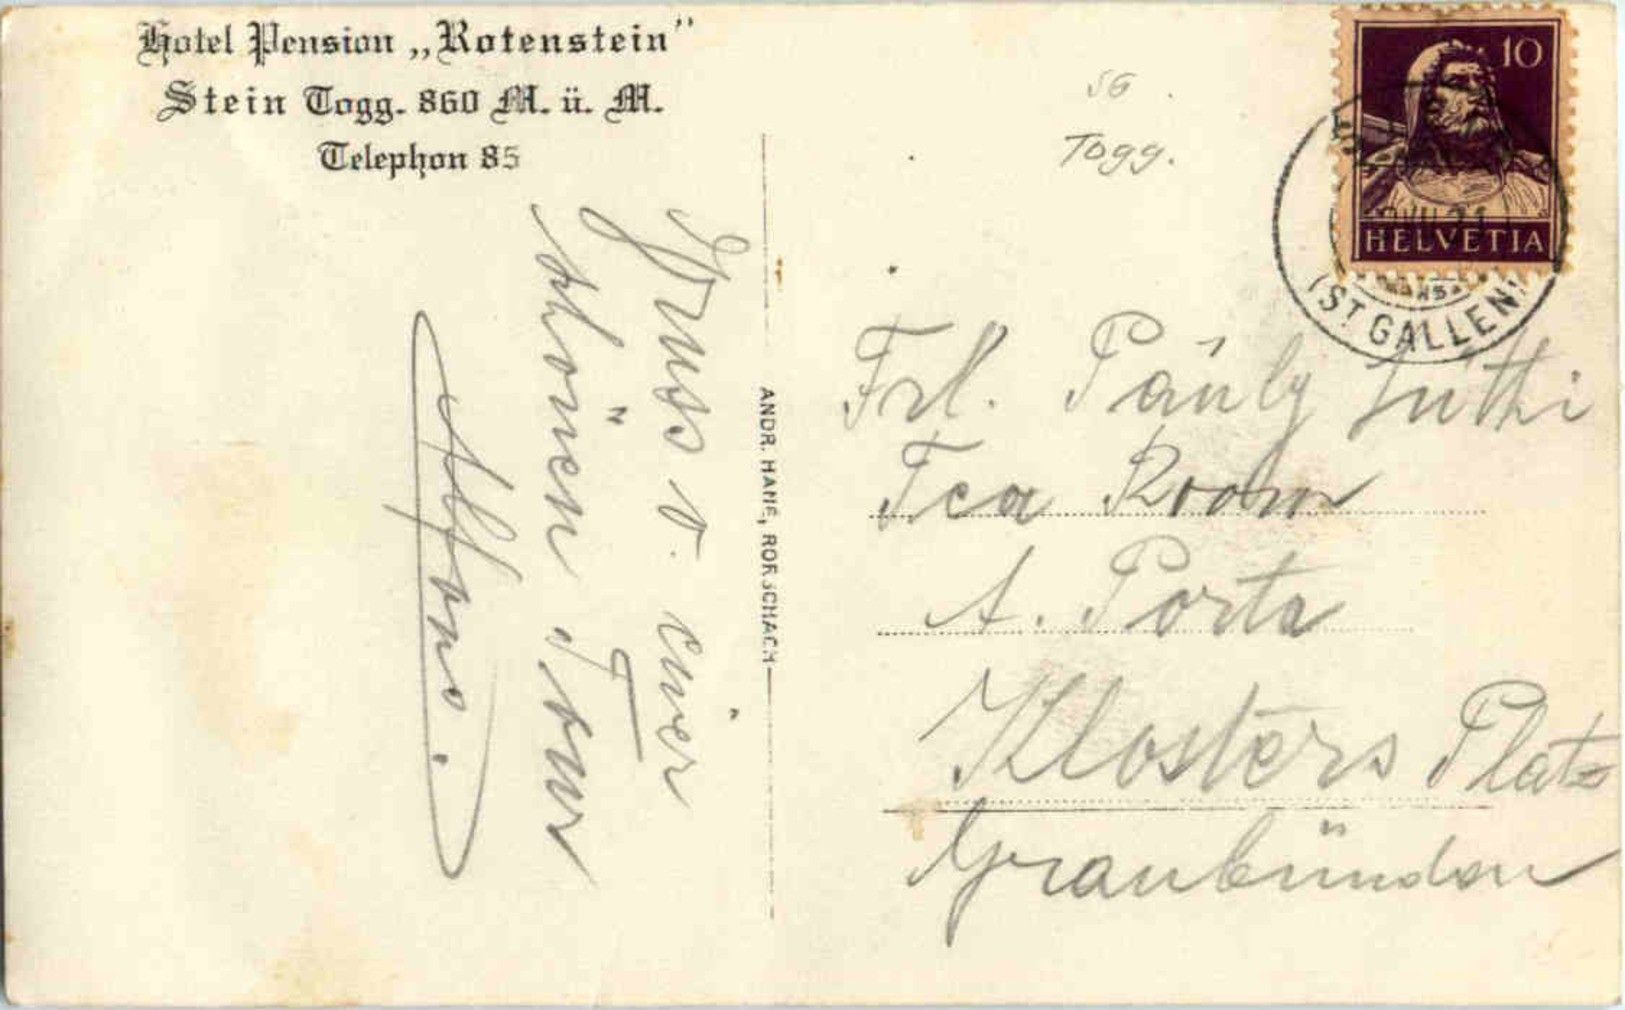 Hotel Pension „Rotenstein”
Stein Togg. 860 M. ü. M.
Telephon 85
SG
Togg.
10
HELVETIA
(ST GALLEN)
Gruss v. einer
schönen Tour
Alfons.
ANDR. HANE, RORSCHACH
Frl. Päuly Luthi
Tea Room
A. Porta
Klosters Platz
Graubünden